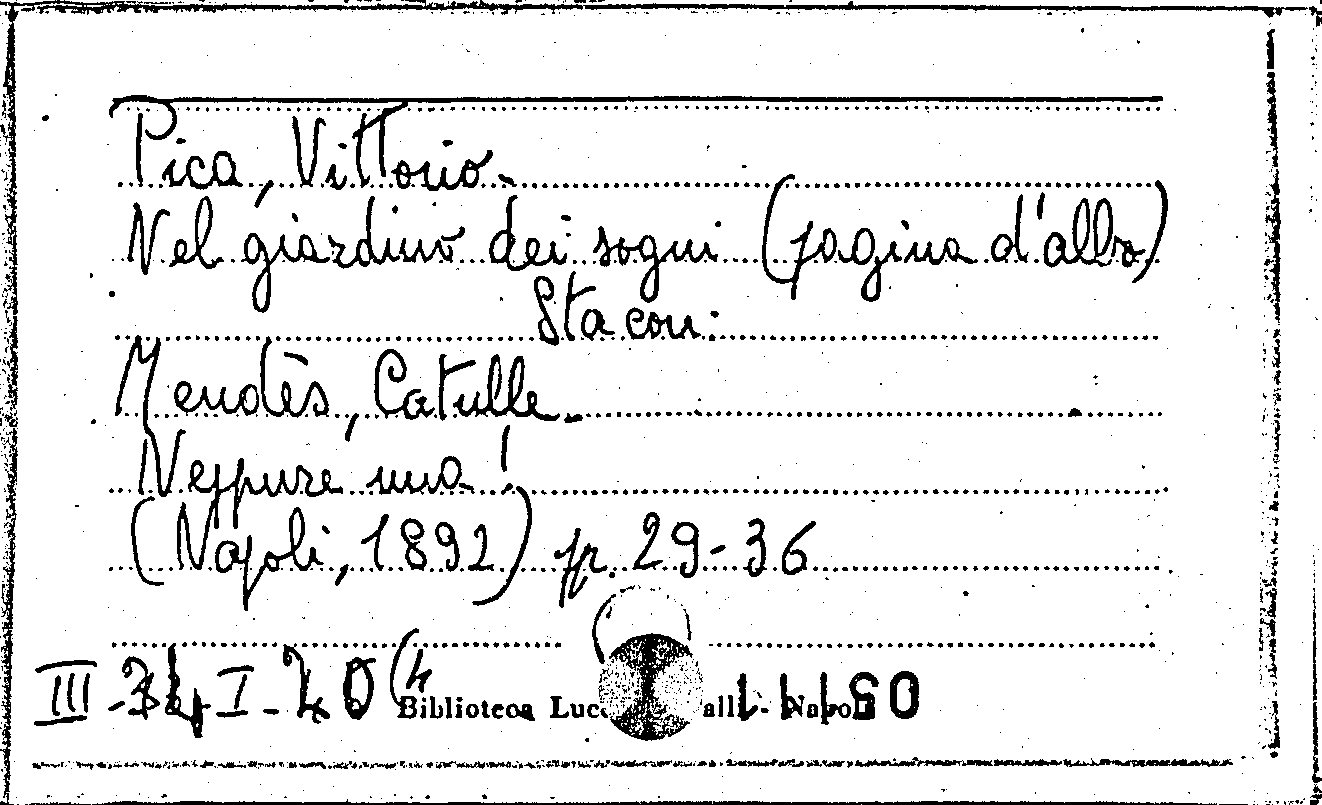 Pica, Vittorio.
Nel giardino dei sogni (pagina d'albo)
Sta con:
Mendès, Catulle.
Neppure una!
(Napoli, 1892) pp. 29-36
III - I - (4 Biblioteca - Napoli